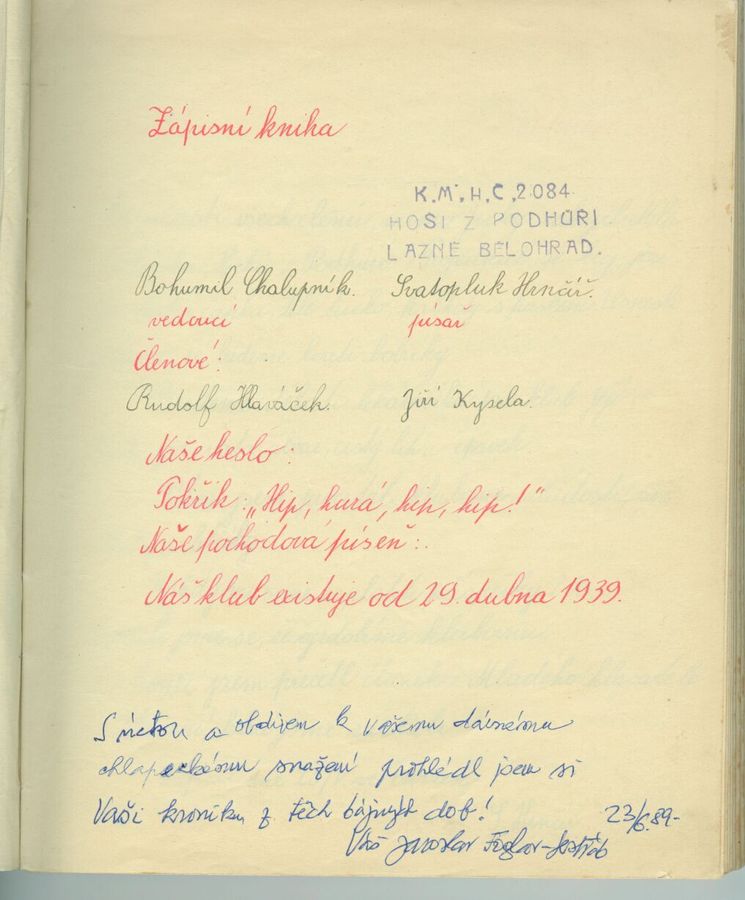 Zápisní kniha
K.M.H.Č.2084
HOŠI Z PODHŮŘÍ
LÁZNĚ BĚLOHRAD.
Bohumil Chalupník. Svatopluk Hrnčíř.
vedoucí písař
Členové:
Rudolf Hlaváček. Jiří Kysela.
Naše heslo:
Pokřik: „Hip, hurá, hip, hip!"
Naše pochodová píseň:.
Náš klub existuje od 29. dubna 1939.
S úctou a obdivem k Vašemu dávnému
chlapeckému snažení prohlédl jsem si
Vaši kroniku z těch bájných dob!
23/6.89-
Váš Jaroslav Foglar-Jestřáb